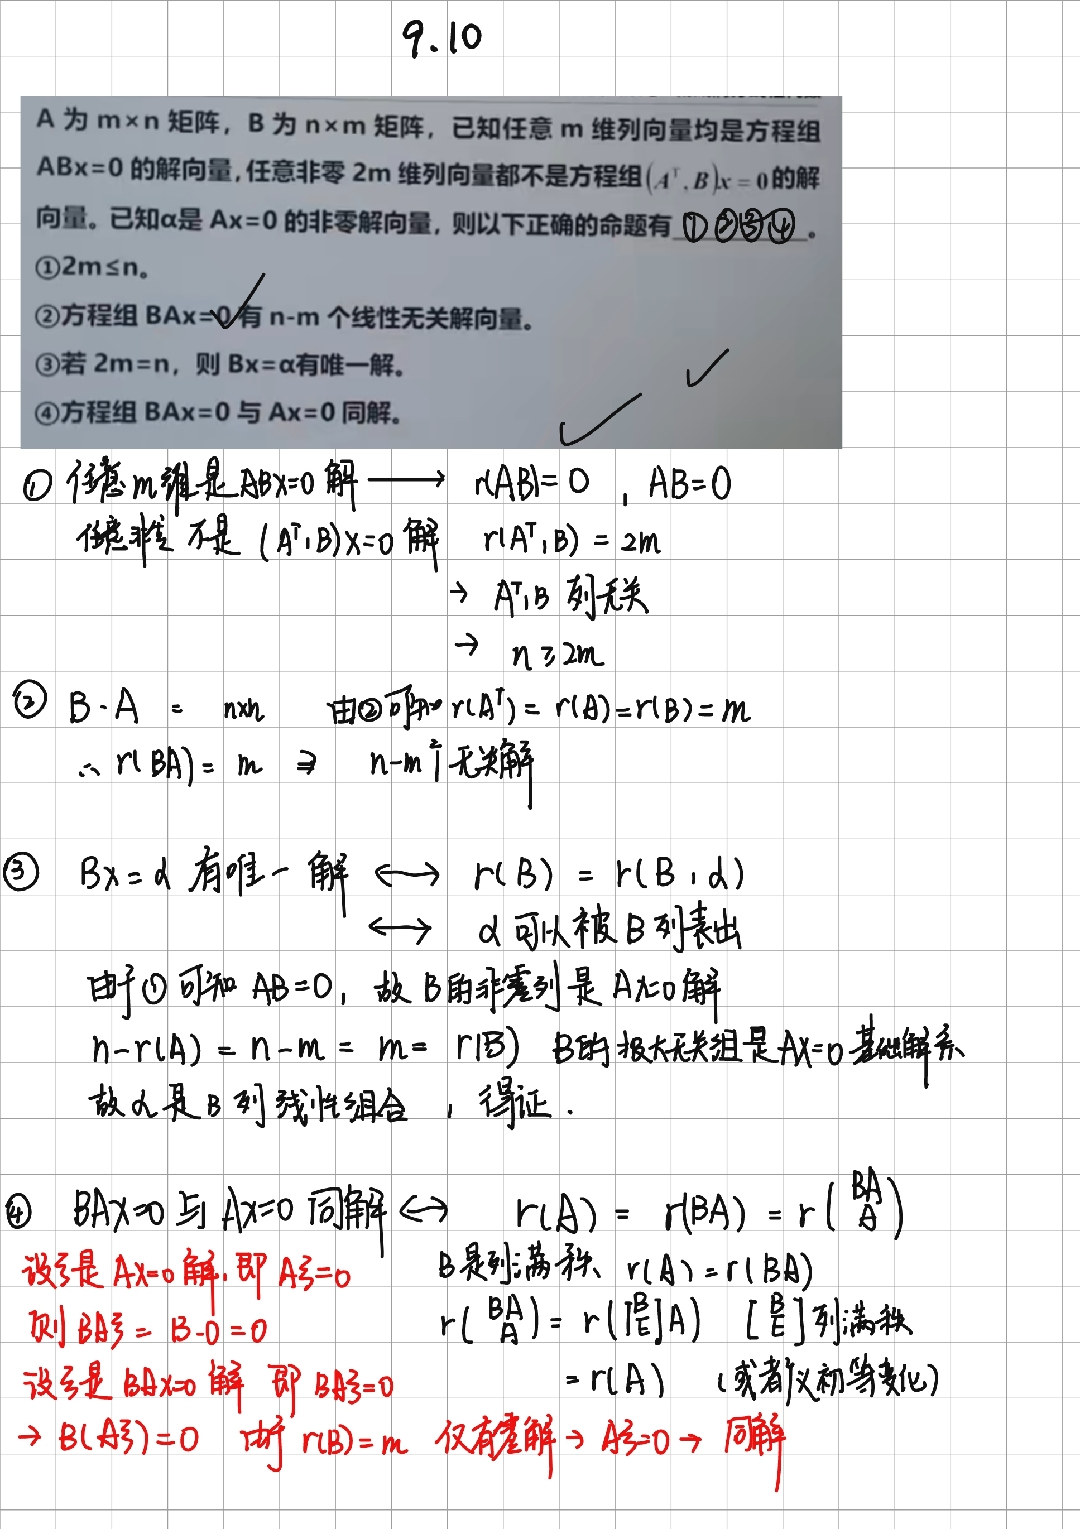 9.10
A 为 m×n 矩阵，B 为 n×m 矩阵，已知任意 m 维列向量均是方程组
ABx=0 的解向量，任意非零 2m 维列向量都不是方程组(Aᵀ, B)x = 0的解
向量。已知α是 Ax=0 的非零解向量，则以下正确的命题有 ①②③④ 。
①2m≤n。
②方程组 BAx=0 有 n-m 个线性无关解向量。
③若 2m=n，则 Bx=α有唯一解。
④方程组 BAx=0 与 Ax=0 同解。
① 任意m维是ABX=0 解 → r(AB)=0 , AB=0
任意非零 不是 (Aᵀ,B)X=0 解 r(Aᵀ,B) = 2m
→ Aᵀ,B 列无关
→ n ≥ 2m
② B·A = n×n 由②可知 r(Aᵀ) = r(A)=r(B)=m
∴ r(BA) = m ⇒ n-m个无关解
③ BX=α 有唯一解 ↔ r(B) = r(B,α)
↔ α可以被B列表出
由于①可知 AB=0, 故B的非零列是 AX=0解
n-r(A) = n-m = m = r(B) B的极大无关组是AX=0基础解系
故α是B列线性组合 , 得证.
④ BAX=0 与 AX=0 同解 ↔ r(A) = r(BA) = r(BA A)
设ξ是 AX=0 解, 即 Aξ=0 B是列满秩 r(A)=r(BA)
则 BAξ = B·0 = 0 r(BA A) = r([B E]A) [B E]列满秩
设ξ是 BAX=0 解 即 BAξ=0 = r(A) (或者初等变化)
→ B(Aξ)=0 由于 r(B)=m 仅有零解 → Aξ=0 → 同解